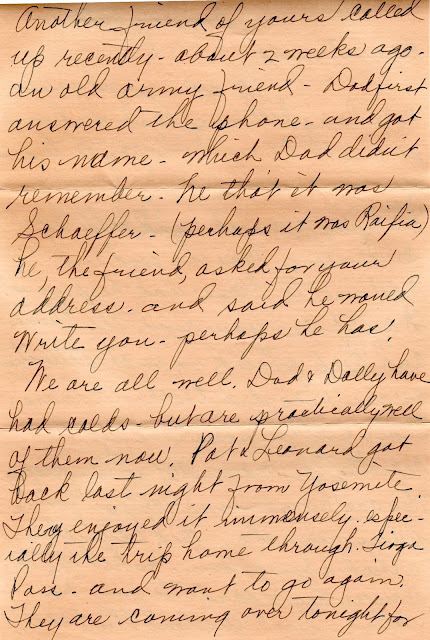 Another friend of yours called
up recently - about 2 weeks ago -
an old army friend - Dad first
answered the phone - and got
his name - which Dad didn't
remember - he tho't it was
Schaeffer - (perhaps it was Raifia)
he, the friend, asked for your
address - and said he would
write you - perhaps he has.
We are all well. Dad & Dolly have
had colds - but are practically well
of them now. Pat & Leonard got
back last night from Yosemite.
They enjoyed it immensely - espec-
ially the trip home through Tioga
Pass - and want to go again.
They are coming over tonight for